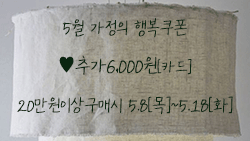 5월 가정의 행복쿠폰
♥추가6,000원[카드]
20만원이상구매시 5.8[목]~5.18[화]